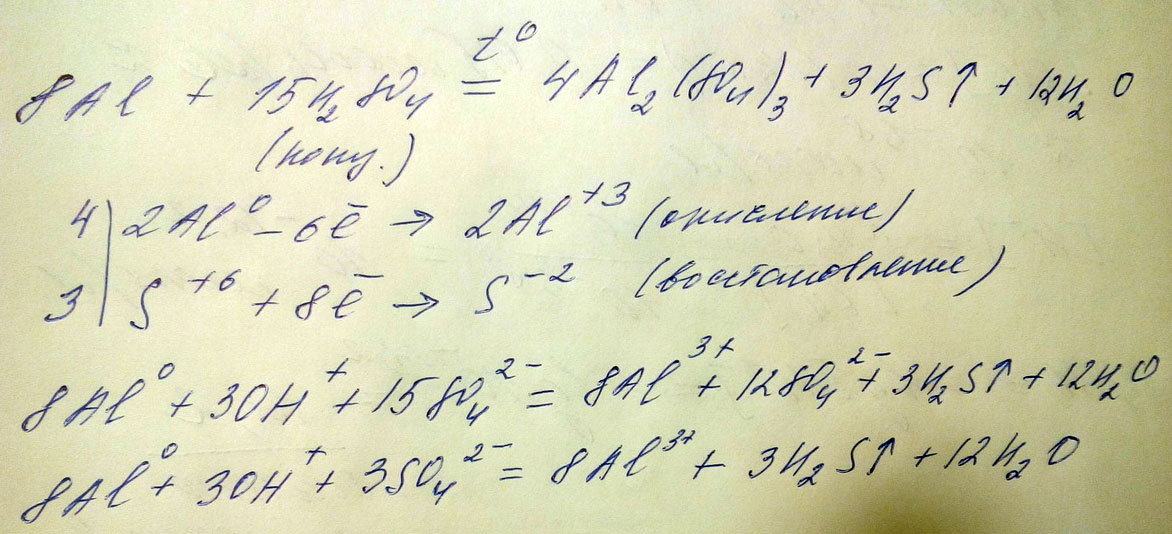 8Al + 15H₂SO₄ =^{t⁰} 4Al₂(SO₄)₃ + 3H₂S↑ + 12H₂O
(конц.)
4 | 2Al⁰ - 6ē → 2Al⁺³ (окисление)
3 | S⁺⁶ + 8ē → S⁻² (восстановление)
8Al⁰ + 30H⁺ + 15SO₄²⁻ = 8Al³⁺ + 12SO₄²⁻ + 3H₂S↑ + 12H₂O
8Al⁰ + 30H⁺ + 3SO₄²⁻ = 8Al³⁺ + 3H₂S↑ + 12H₂O